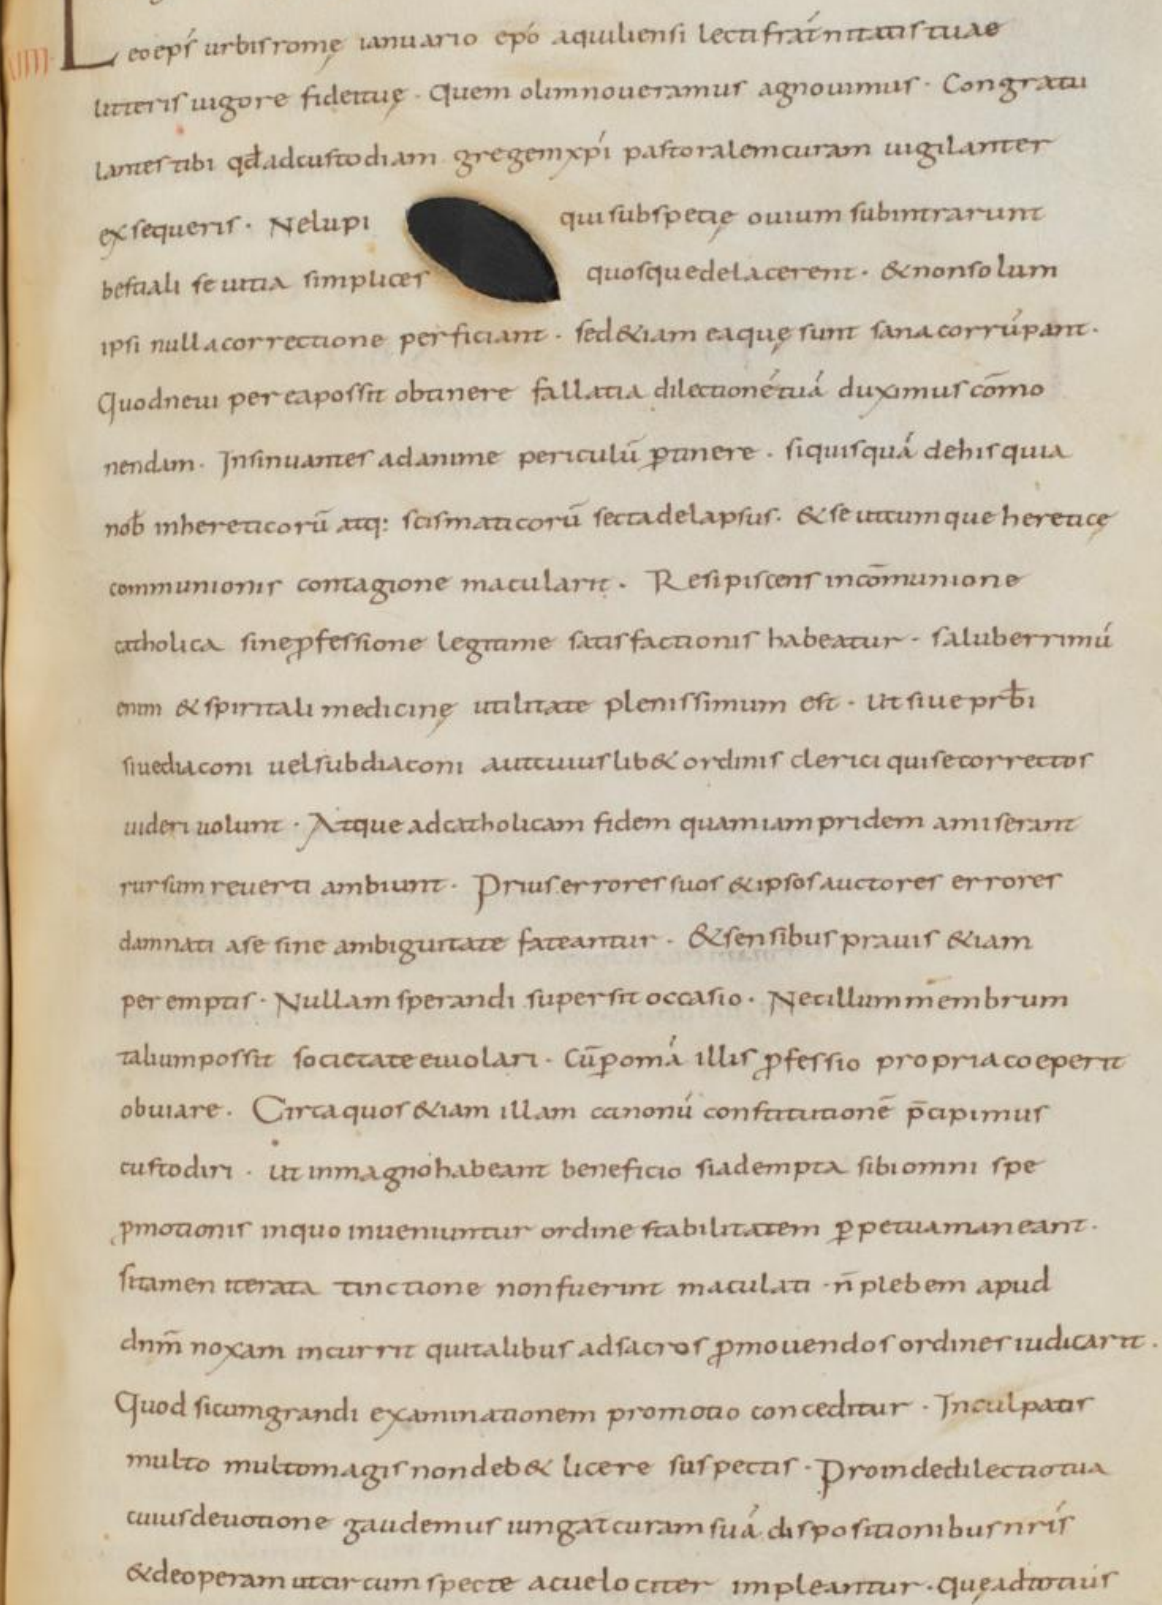 XIIII. Leo eps̄ urbis romę ianuario epō aquiliensi lectis frat̄nitatis tuae
litteris uigore fidei tuę · Quem olim noueramus agnouimus · Congratu
lantes tibi qđ ad custodiam gregem xp̄i pastoralem curam uigilanter
exsequeris · Ne lupi qui sub spetię ouium subintrarunt
bestiali seuitia simplices quosque delacerent · & non solum
ipsi nulla correctione perficiant · sed &iam ea quę sunt sana corrūpant ·
Quod ne uipereapossit obtinere fallatia dilectionē tuā duximus cōmo
nendam · Insinuantes ad anime periculū ꝑtinere · si quisquā de his qui a
nob̄ in hereticorū atq: scismaticorū secta delapsus · & se utcumque heretice̜
communionis contagione macularit · Resipiscens in cōmunione
catholica sine ꝓfessione legitime satisfactionis habeatur · saluberrimū
enim & spiritali medicinę utilitate plenissimum est · Ut siue prb̄i
siue diaconi uel subdiaconi aut cuiuslib& ordinis clerici qui se correctos
uideri uolunt · Atque ad catholicam fidem quam iam pridem amiserant
rursum reuerti ambiunt · Prius errores suos & ipsos auctores errores
damnati a se sine ambiguitate fateantur · & sensibus prauis &iam
peremptis · Nullam sperandi supersit occasio · Nec illum membrum
talium possit societate euiolari · Cū ꝑ omā illis ꝓfessio propria coeperit
obuiare · Circa quos &iam illam canonū constitutionē p̄cipimus
custodiri · ut in magno habeant beneficio si adempta sibi omni spe
ꝓmotionis in quo inueniuntur ordine stabilitatem ꝑpetua maneant ·
si tamen iterata tinctione non fuerint maculati · n̄ plebem apud
dnm̄ noxam incurrit qui talibus ad sacros ꝓmouendos ordines iudicarit ·
Quod si cum grandi examinationem promotio conceditur · Inculpatis
multo multo magis non deb& licere suspectis · Proinde dilectio tua
cuius deuotione gaudemus iungat curam suā dispositionibus nrīs
& de operam ut circumspecte ac uelociter impleantur · quę ad totius